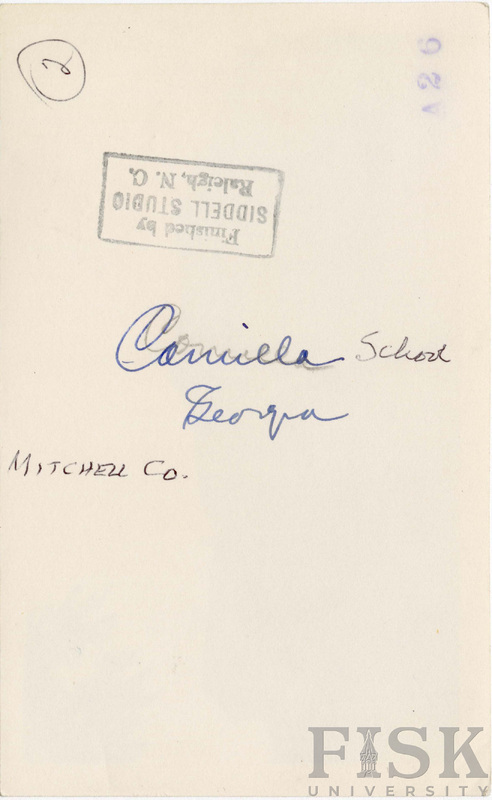 2
V26
Finished by
SIDDELL STUDIO
Raleigh, N. C.
Camilla School
Georgia
MITCHELL CO.
FISK
UNIVERSITY